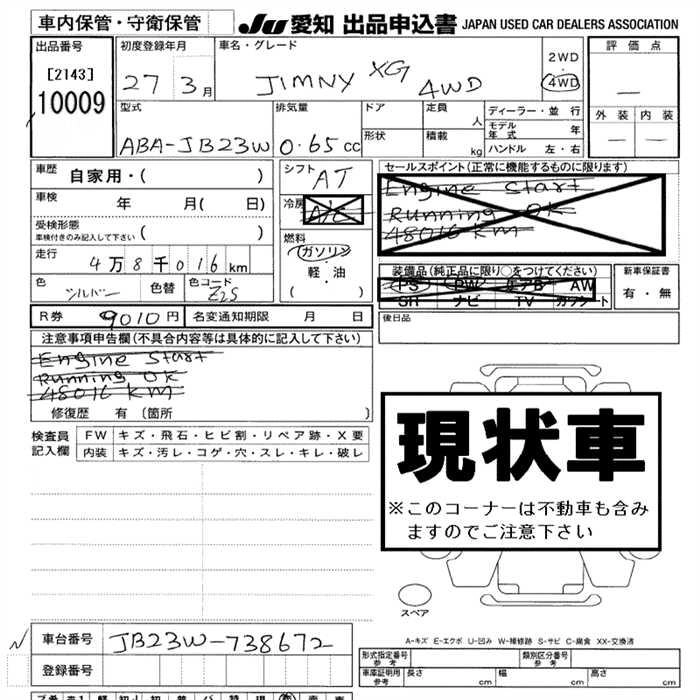 車内保管・守衛保管
JU 愛知 出品申込書 JAPAN USED CAR DEALERS ASSOCIATION
出品番号
[2143]
10009
初度登録年月
27 3月
車名・グレード
JIMNY XG 4WD
2WD
・
4WD
評価点
—
外装 内装
— —
型式
ABA-JB23W
排気量
0.65cc
ドア
形状
定員 人
積載 kg
ディーラー・並行
モデル年式 年
ハンドル 左・右
車歴 自家用・( )
車検 年 月( 日)
受検形態
車検付きのみ記入して下さい ( )
走行
4万8千016km
色 シルバー 色替 色コード Z2S
シフト AT
冷房 A/C
燃料
ガソリン
・
軽・油
( )
セールスポイント(正常に機能するものに限ります)
Engine Start
Running OK
48016 KM
装備品(純正品に限り○をつけてください)
PS PW エアB AW
SR ナビ TV カワシート
新車保証書
有・無
R券 9010円 名変通知期限 月 日
後日品
注意事項申告欄(不具合内容等は具体的に記入して下さい)
Engine Start
Running OK
48016 KM
修復歴 有〔箇所 〕
検査員記入欄
FW キズ・飛石・ヒビ割・リペア跡・X要
内装 キズ・汚レ・コゲ・穴・スレ・キレ・破レ
現状車
※このコーナーは不動車も含み
ますのでご注意下さい
スペア
A-キズ E-エクボ U-凹み W-補修跡 S-サビ C-腐食 XX-交換済
車台番号 JB23W-738672
登録番号
形式指定番号 参考 類別区分番号 参考
車庫証明用 参考 長さ cm 幅 cm 高さ cm